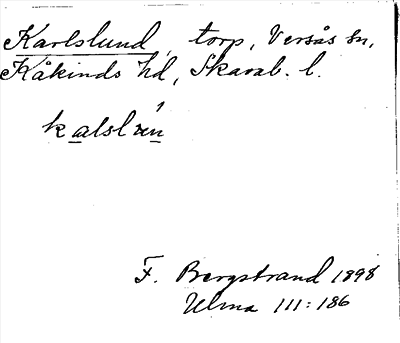 Karlslund, torp, Versås sn,
Kåkinds hd, Skarab. l.
kalslun
F. Bergstrand 1898
Ulma 111:186